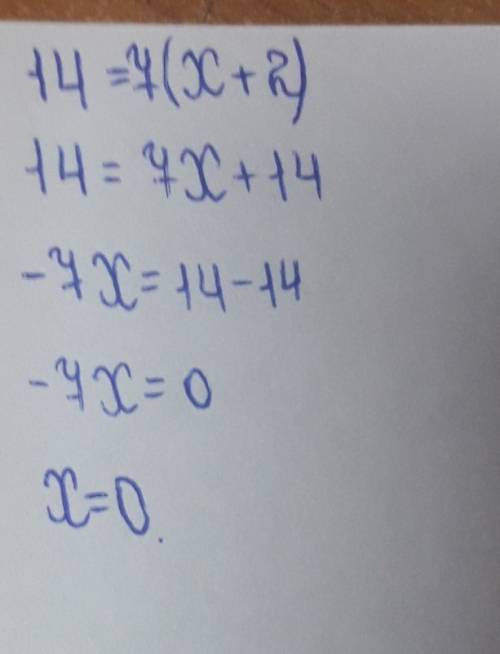 14 = 7(x + 2)
14 = 7x + 14
-7x = 14 - 14
-7x = 0
x = 0.